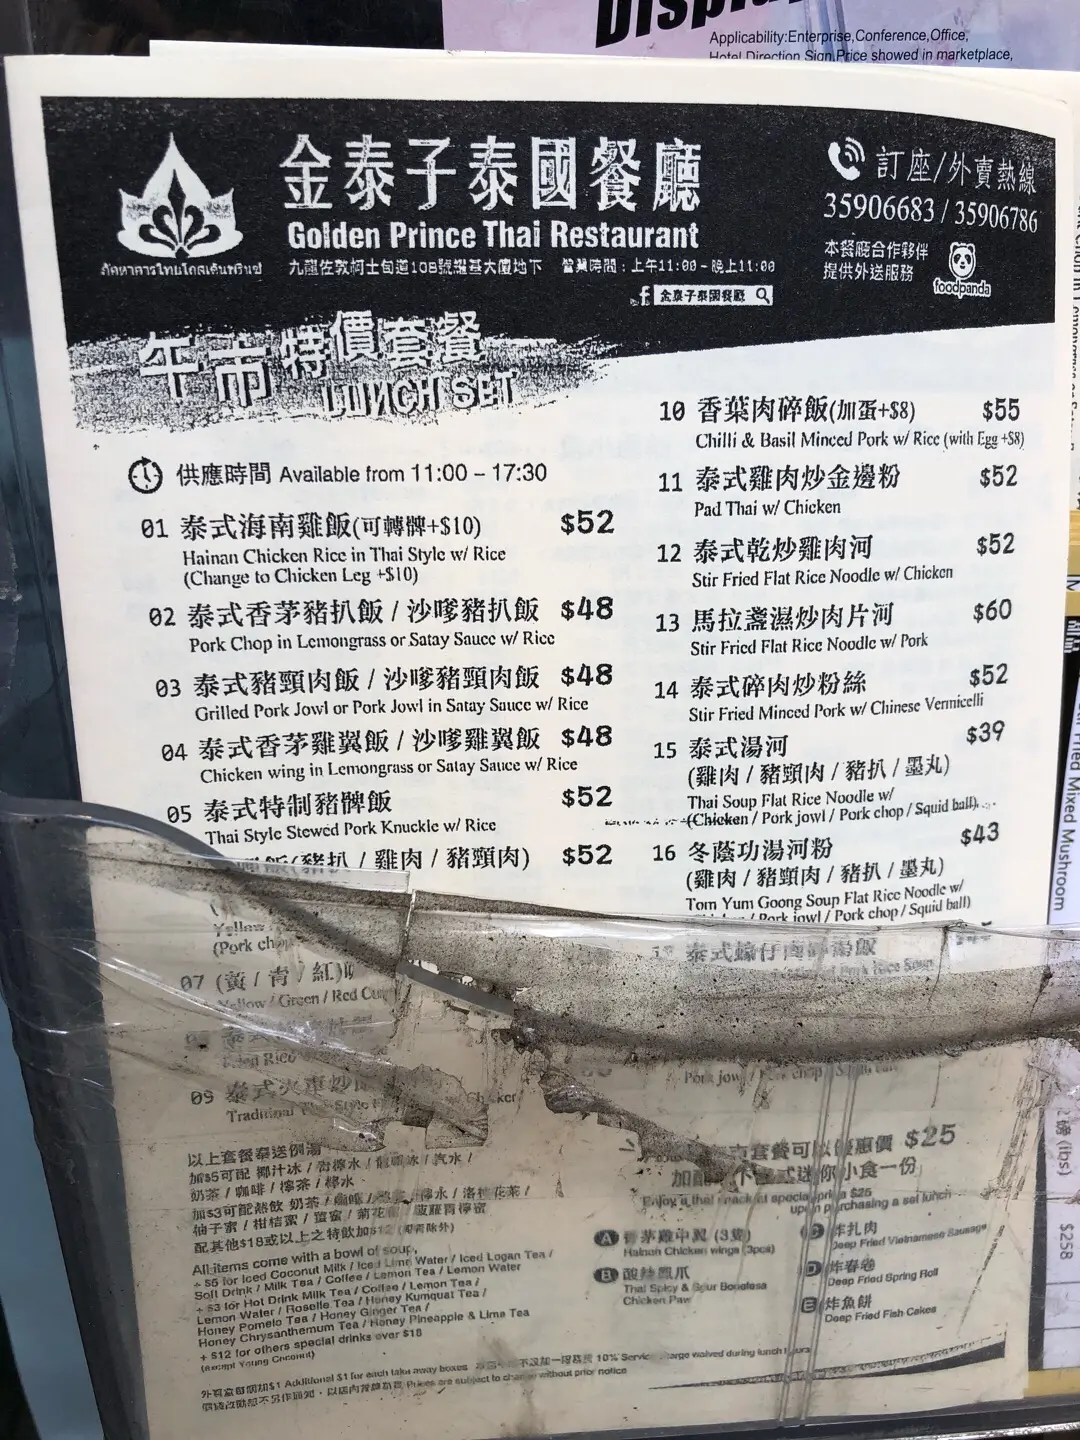 Applicability:Enterprise,Conference,Office,
Hotel Direction Sign,Price showed in marketplace,
金泰子泰國餐廳
Golden Prince Thai Restaurant
九龍佐敦柯士甸道108號 大廈地下 營業時間：上午11:00 - 晚上11:00
金泰子泰國餐廳
訂座/外賣熱線
35906683 / 35906786
本餐廳合作夥伴
提供外送服務
foodpanda
午市特價套餐
LUNCH SET
供應時間 Available from 11:00 – 17:30
01 泰式海南雞飯(可轉髀+$10) $52
Hainan Chicken Rice in Thai Style w/ Rice
(Change to Chicken Leg +$10)
02 泰式香茅豬扒飯 / 沙嗲豬扒飯 $48
Pork Chop in Lemongrass or Satay Sauce w/ Rice
03 泰式豬頸肉飯 / 沙嗲豬頸肉飯 $48
Grilled Pork Jowl or Pork Jowl in Satay Sauce w/ Rice
04 泰式香茅雞翼飯 / 沙嗲雞翼飯 $48
Chicken wing in Lemongrass or Satay Sauce w/ Rice
05 泰式特制豬髀飯 $52
Thai Style Stewed Pork Knuckle w/ Rice
飯(豬扒 / 雞肉 / 豬頸肉) $52
Yellow
(Pork chop
07 (黃 / 青 / 紅)
Yellow / Green / Red Cu
09 泰式
Traditional
10 香葉肉碎飯(加蛋+$8) $55
Chilli & Basil Minced Pork w/ Rice (with Egg +$8)
11 泰式雞肉炒金邊粉 $52
Pad Thai w/ Chicken
12 泰式乾炒雞肉河 $52
Stir Fried Flat Rice Noodle w/ Chicken
13 馬拉盞濕炒肉片河 $60
Stir Fried Flat Rice Noodle w/ Pork
14 泰式碎肉炒粉絲 $52
Stir Fried Minced Pork w/ Chinese Vermicelli
15 泰式湯河 $39
(雞肉 / 豬頸肉 / 豬扒 / 墨丸)
Thai Soup Flat Rice Noodle w/
(Chicken / Pork jowl / Pork chop / Squid ball)
16 冬蔭功湯河粉 $43
(雞肉 / 豬頸肉 / 豬扒 / 墨丸)
Tom Yum Goong Soup Flat Rice Noodle w/
/ Pork jowl / Pork chop / Squid ball)
泰式蠔仔肉碎湯飯
Pork Rice Soup
以上套餐奉送例湯
加$5可配 椰汁冰 / 青檸水 / 龍眼冰 / 汽水 /
奶茶 / 咖啡 / 檸茶 / 檸水
加$3可配熱飲 奶茶 / 咖啡 / 檸茶 / 檸水 / 洛神花茶 /
柚子蜜 / 柑桔蜜 / 薑蜜 / 菊花蜜 / 菠蘿青檸蜜
配其他$18或以上之特飲加$12
All items come with a bowl of soup,
+ $5 for Iced Coconut Milk / Iced Lime Water / Iced Logan Tea /
Soft Drink / Milk Tea / Coffee / Lemon Tea / Lemon Water
+ $3 for Hot Drink Milk Tea / Coffee / Lemon Tea /
Lemon Water / Roselle Tea / Honey Kumquat Tea /
Honey Pomelo Tea / Honey Ginger Tea /
Honey Chrysanthemum Tea / Honey Pineapple & Lime Tea
+ $12 for others special drinks over $18
(except Young Coconut)
市套餐可以優惠價 $25
式迷你小食一份
Enjoy a thai snack at special price $25
upon purchasing a set lunch
A 香茅雞中翼 (3隻)
Hainan Chicken wings (3pcs)
B 酸辣鳳爪
Thai Spicy & Sour Boneless
Chicken Paw
炸扎肉
Deep Fried Vietnamese Sausage
D 炸春卷
Deep Fried Spring Roll
E 炸魚餅
Deep Fried Fish Cakes
外賣盒每個加$1 Additional $1 for each take away boxes 10% Service charge waived during lunch hours
Prices are subject to change without prior notice
Fried Mixed Mushroom
磅 (lbs)
$258